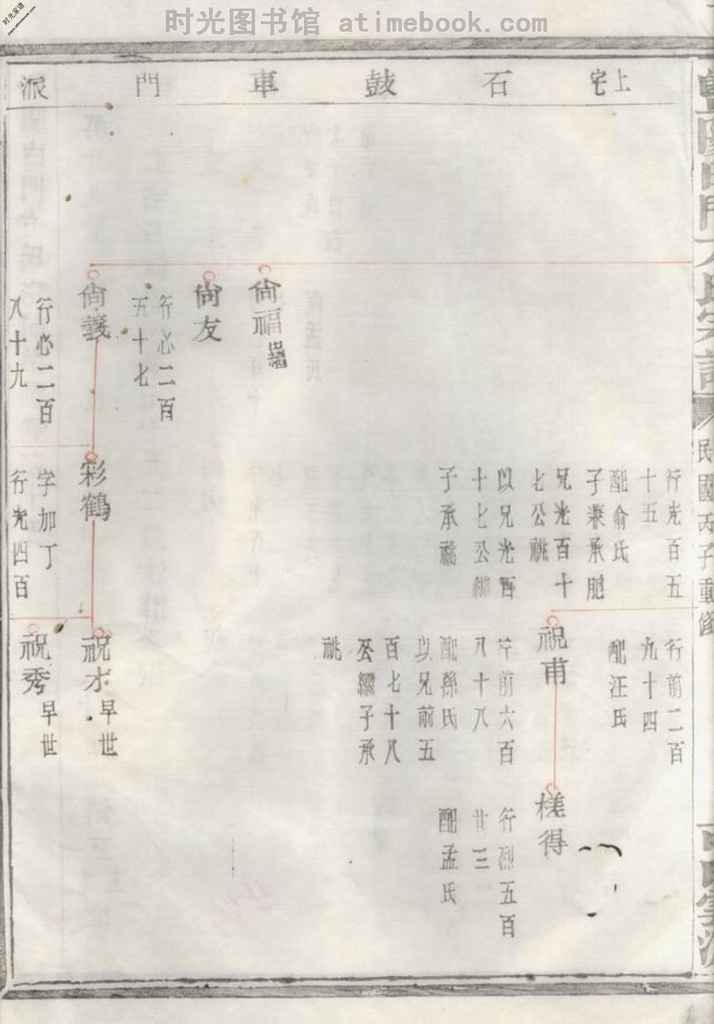 时光图书馆 atimebook.com
上宅石鼓車門派
民國丙子重修
行光百五
十五
配俞氏
子 承
兄光百十
七公祧
以兄光百
十七公
子承祧
行前二百
九十四
配汪氏
祝甫
行前六百
八十八
配孫氏
以兄前五
百七十八
公 子承
祧
得
行 五百
廿三
配孟氏
尙福
尙友
行必二百
五十七
尙義
行必二百
八十九
彩鶴
字加丁
行光四百
祝才 早世
祝秀 早世